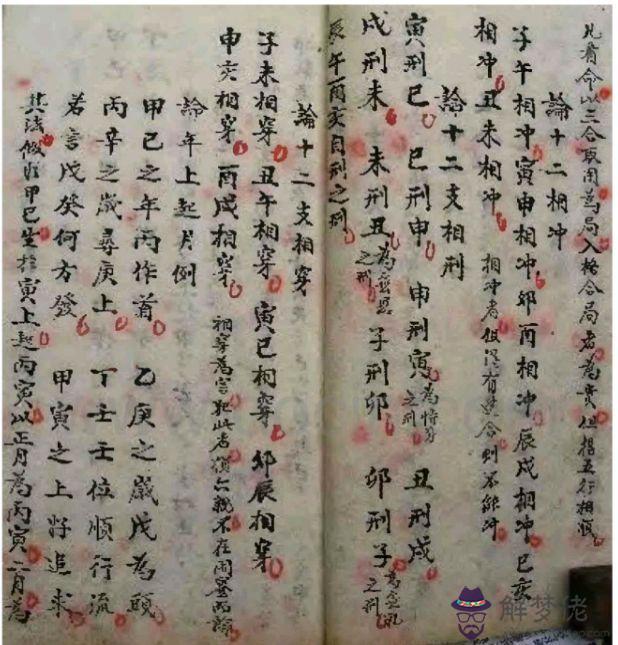 凡看命以三合取用為局入格合局者為貴但揩五行相順
論十二相冲
子午相冲寅申相冲卯酉相冲辰戌相冲巳亥
相冲丑未相冲 相冲者但得有遇合則不能冲
論十二支相刑
寅刑巳 巳刑申 申刑寅為恃勢之刑 丑刑戌
戌刑未 未刑丑為之刑 子刑卯 卯刑子為無礼之刑
辰午酉亥自刑之刑
論十二支相穿
子未相穿丑午相穿寅巳相穿卯辰相穿
申亥相穿酉戌相穿 相穿為害犯此者六親不在
論年上起月例
甲巳之年丙作首 乙庚之歲戊為頭
丙辛之歲尋庚上 丁壬壬位順行流
若言戊癸何方發 甲寅之上好追求
其法假如甲巳生於寅上起丙寅以正月為丙寅二月為
解梦佬